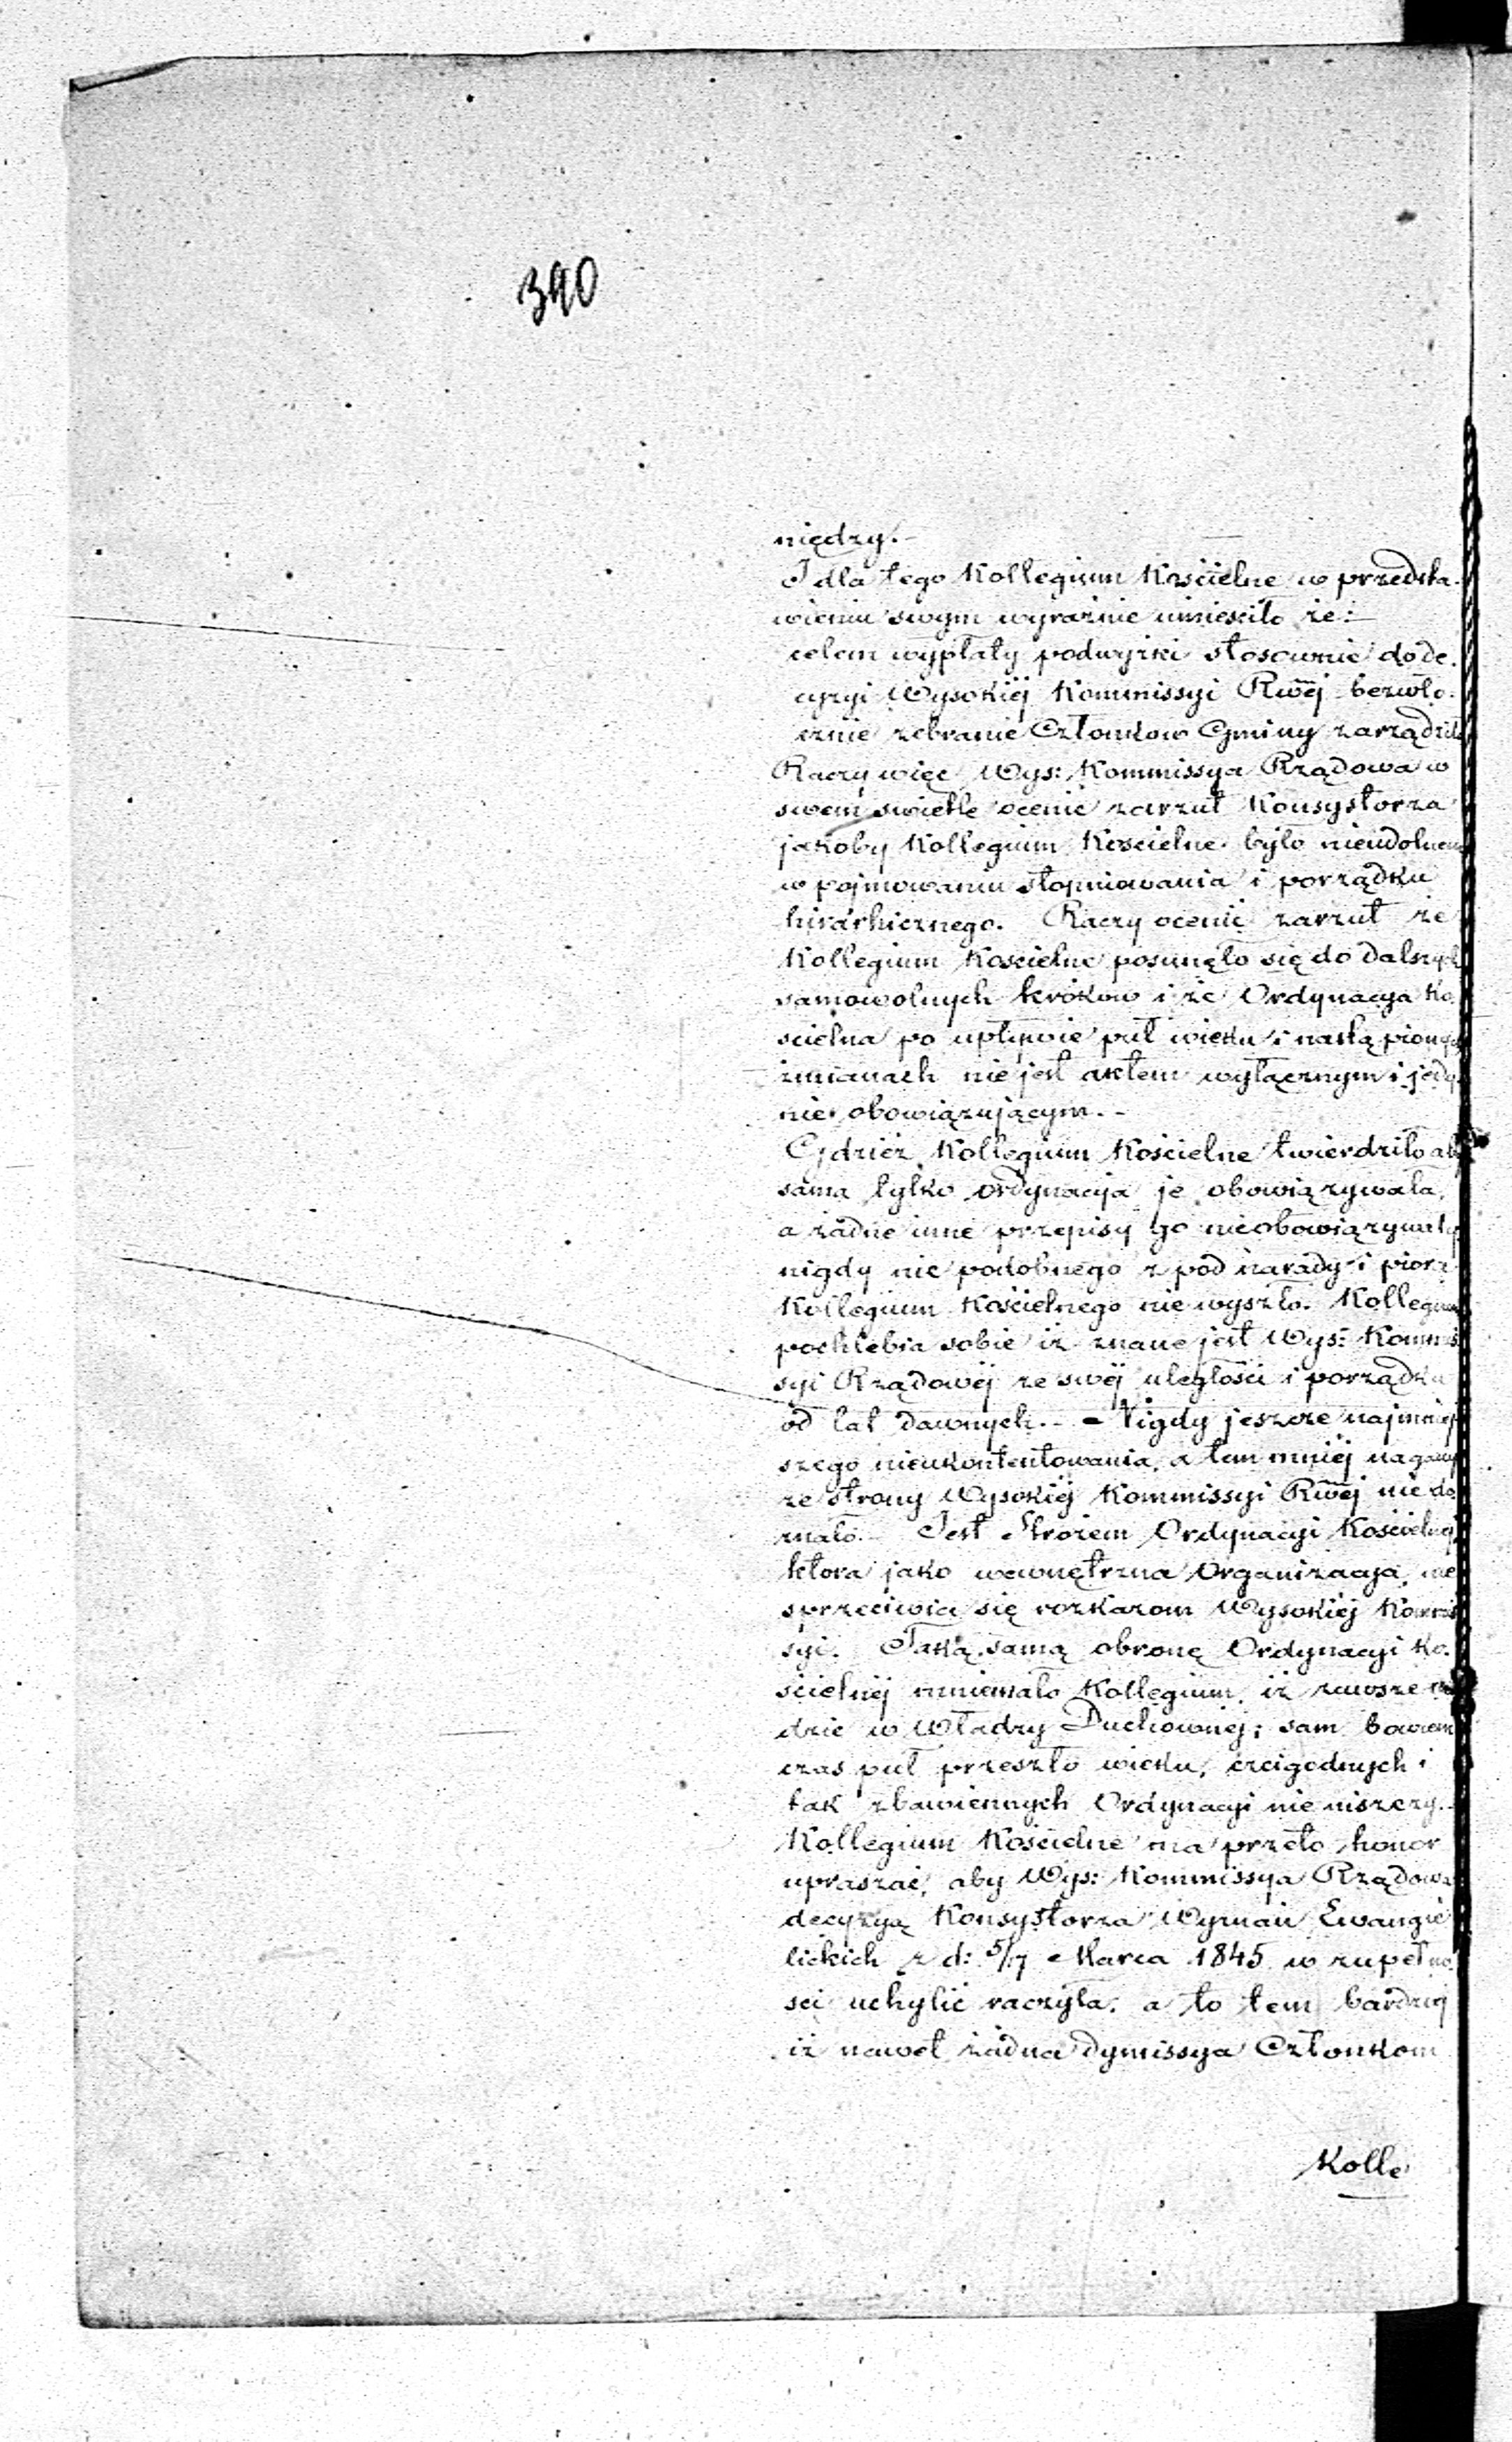 390
niędzy.-
I dla tego Kollegium Kościelne w przedsta-
wieniu swym wyraźnie umieściło że:
celem wypłaty podwyżki stosownie do de-
cyzyi Wysokiéj Kommissyi Rwéj bezwło-
cznie zebranie Członków Gminy zarządziło
Raczy więc Wys: Kommissya Rządowa w
swem świetle ocenić zarzut Konsystorza
jakoby Kollegium Kościelne było nieudolnem
w pojmowaniu stopniowania i porządku
hirarhicznego. Raczy ocenić zarzut że
Kollegium Kościelne posunęło się do dalszych
samowolnych kroków i że Ordynacya Ko-
ścielna po upływie puł wieku i nastąpionych
zmianach nie jest aktem wyłącznym i jedy-
nie obowiązującym.-
Gdzież Kollegium Kościelne twierdziło aby
sama tylko ordynacija je obowiązywała,
a żadne inne przepisy go nieobowiązywały
nigdy nic podobnego z pod narady i pióra
Kollegium Kościelnego nie wyszło. Kollegium
pochlebia sobie iż znane jest Wys: Kommis-
syi Rządowéj ze swéj uległości i porządku
od lat dawnych.- - Nigdy jeszcze najmniej-
szego nieukontentowania, a tem mniéj nagany
ze strony Wysokiéj Kommissyi Rwéj nie do-
znało. Jest Stróżem Ordynacyi Kościelnéj
która jako wewnętrzna Organizacya, nie
sprzeciwia się rozkazom Wysokiéj Kommis-
syi. Taką samą obronę Ordynacyi Ko-
ścielnéj mniemało Kollegium, iż zawsze
dzie w Władzy Duchownéj; sam bowiem
czas puł przeszło wieku, czcigodnych i
tak zbawiennych Ordynacyi nie niszczy.-
Kollegium Kościelne ma przeto honor
upraszać, aby Wys: Kommissya Rządowa
decyzyą Konsystorza Wyznań Ewangie
lickich z d: 5/17 Marca 1845 w zupełno-
ści uchylić raczyła. a to tem bardziéj
iż nawet żadna dymissya Członkom
Kolle